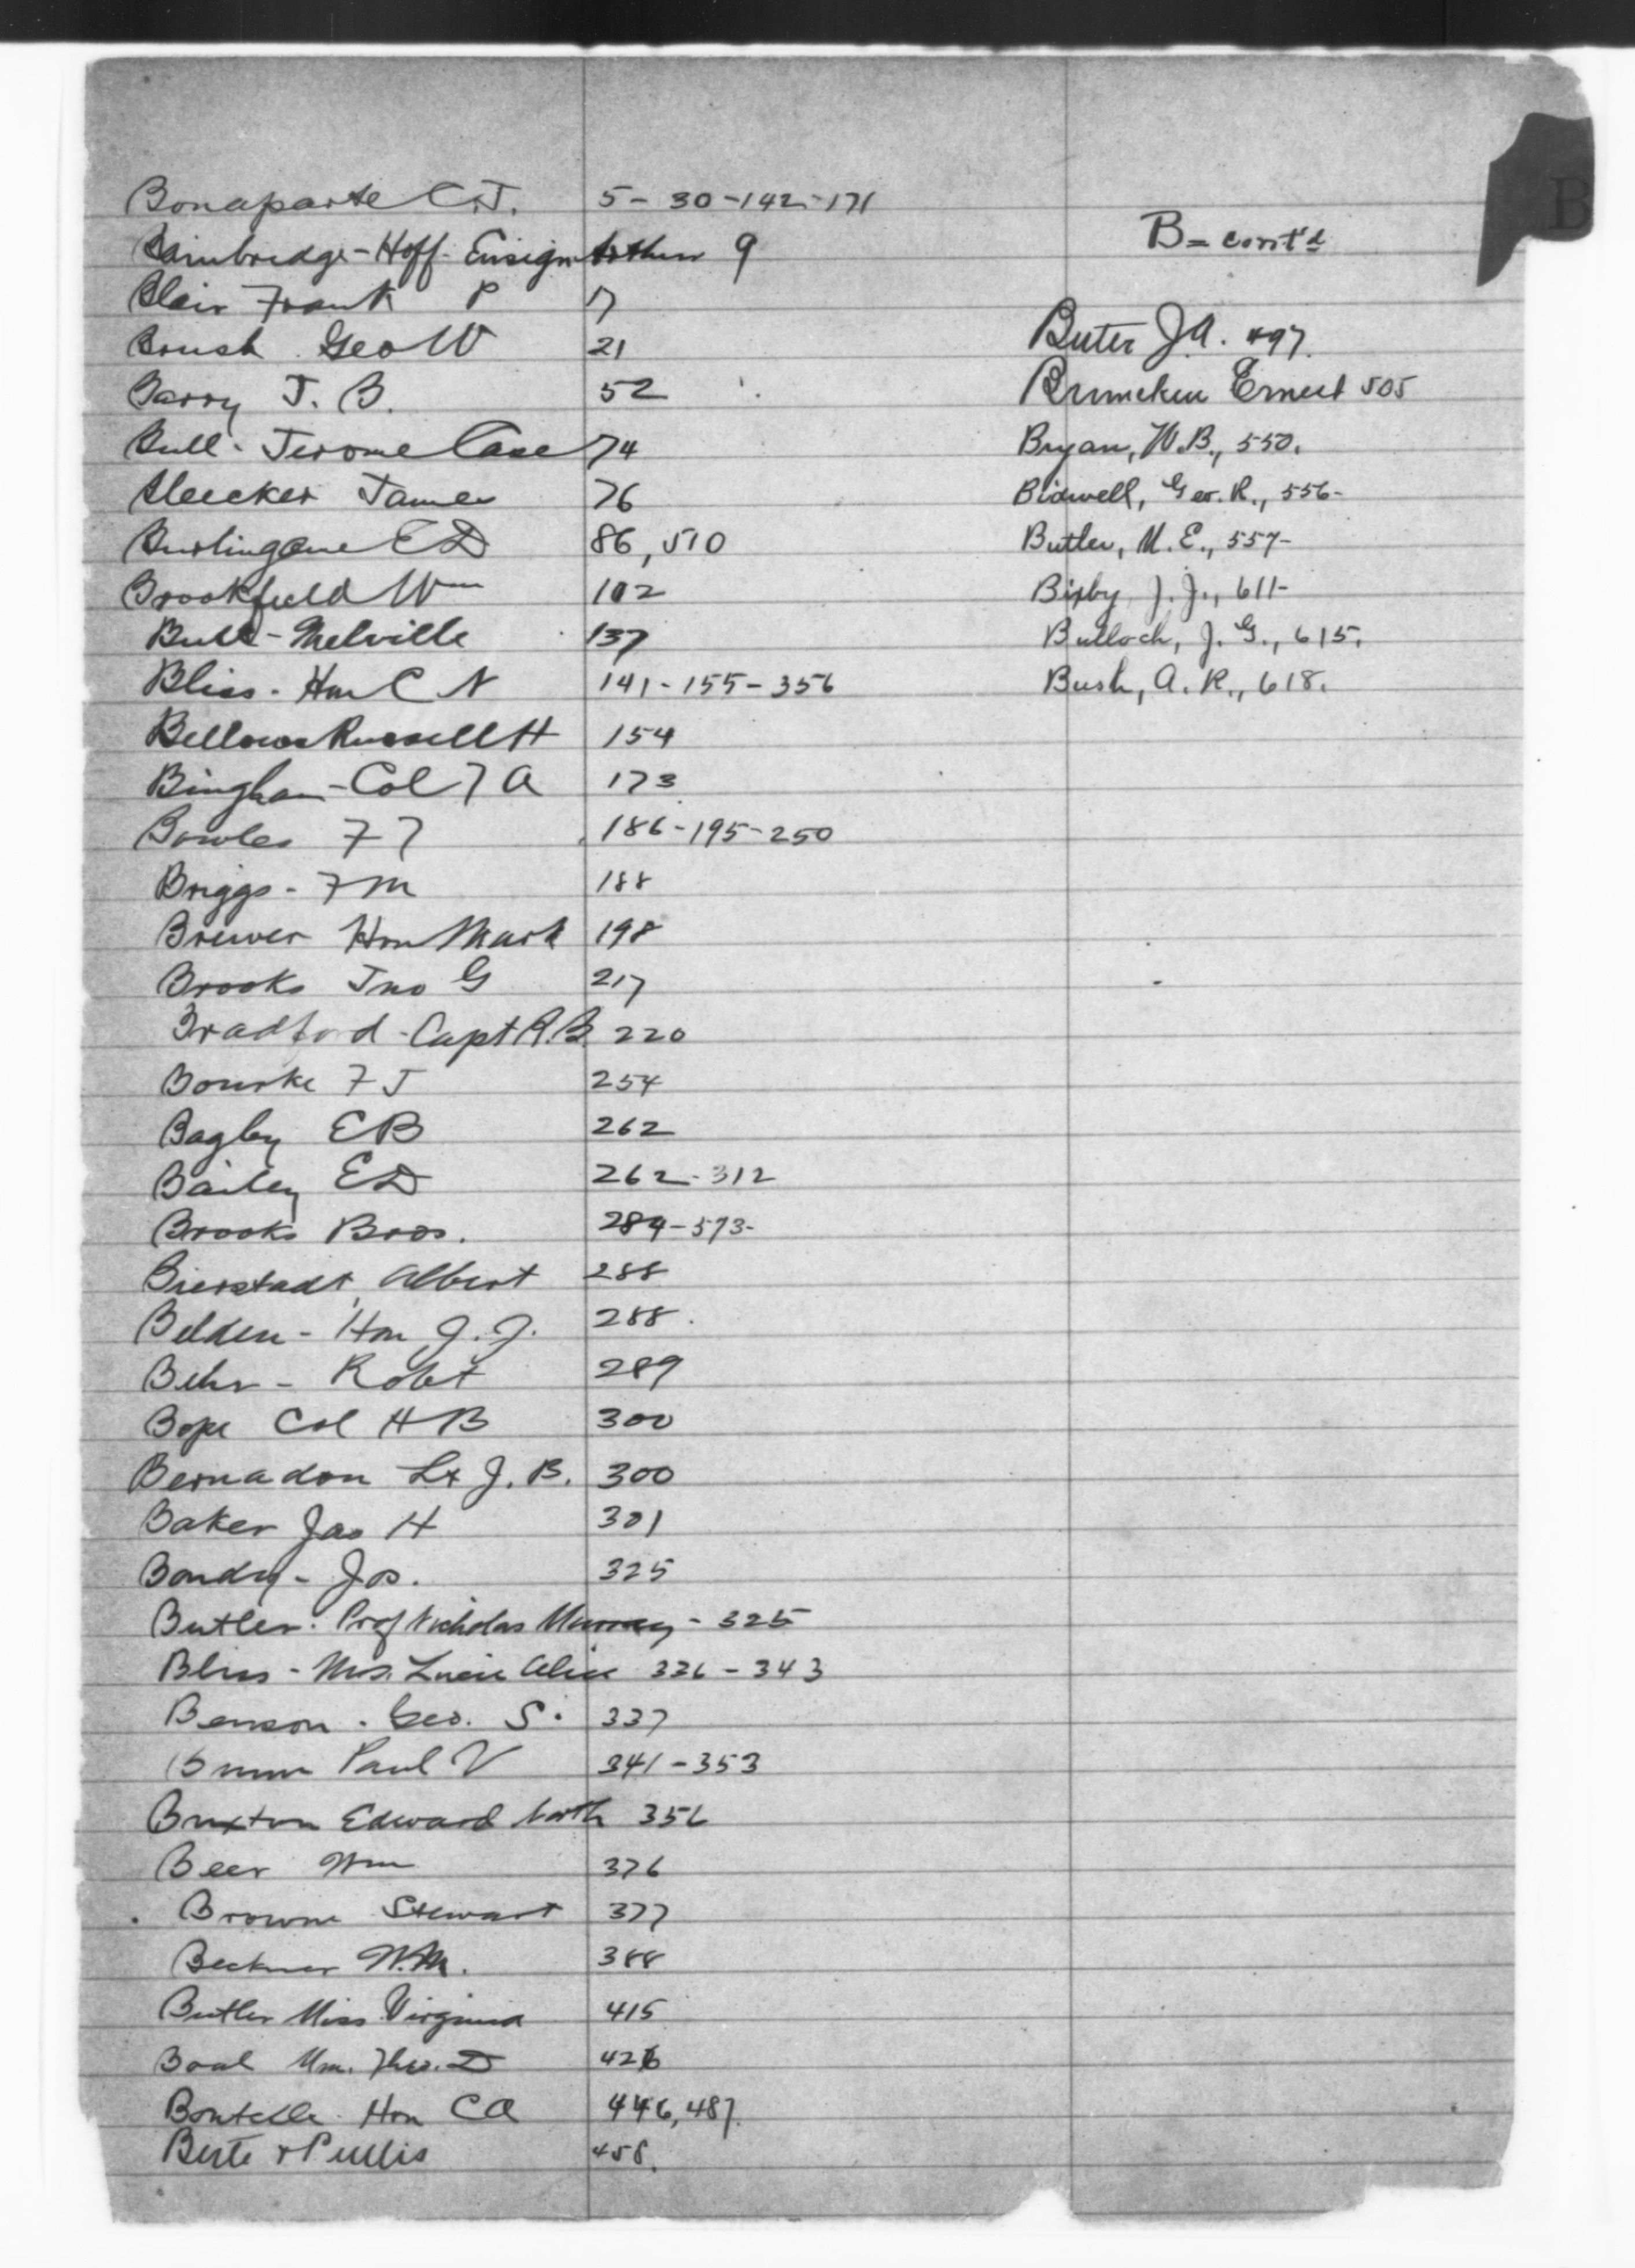 B
Bonaparte C.J. 5-30-142-171
Bainbridge-Hoff. Ensign Arthur 9
Blair Frank P 17
Brush Geo W 21
Barry J. B. 52
Bull- Jerome Case 74
Bleecker James 76
Burlingame E D 86, 510
Brookfield Wm 102
Bull-Melville 137
Bliss- Hon C N 141-155-356
Bellows Russell H 154
Bingham-Col T A 173
Bowles F T 186-195-250
Briggs- F M 188
Brewer Hon Mark 198
Brooks Jno G 217
Bradford-Capt R.B. 220
Bourke F J 254
Bagby E B 262
Bailey E D 262-312
Brooks Bros. 284-573-
Bierstadt, Albert 288
Belden- Hon J. J. 288.
Behr- Robt 289
Bope Col H B 300
Bernadon Lt J. B. 300
Baker Jas H 301
Bondy- Jos. 325
Butler. Prof Nicholas Murray-325
Bliss-Mrs. Lucie Alice 336-343
Benson. Geo. S. 337
Paul V 341-353
Buxton Edward North 356
Beer Wm 376
Browne Stewart 377
Beckner W.M. 388
Butler Miss Virginia 415
Boal Theo. D 426
Boutelle Hon C A 446, 487.
& Pullis 458.
B= cont'd
Buter J.A. 497.
Bruncken Ernest 505
Bryan, W.B., 550.
Bidwell, Geo. R., 556-
Butler, M. E., 557-
Bixby, J. J., 611-
Bulloch, J. G., 615.
Bush, A. R., 618.